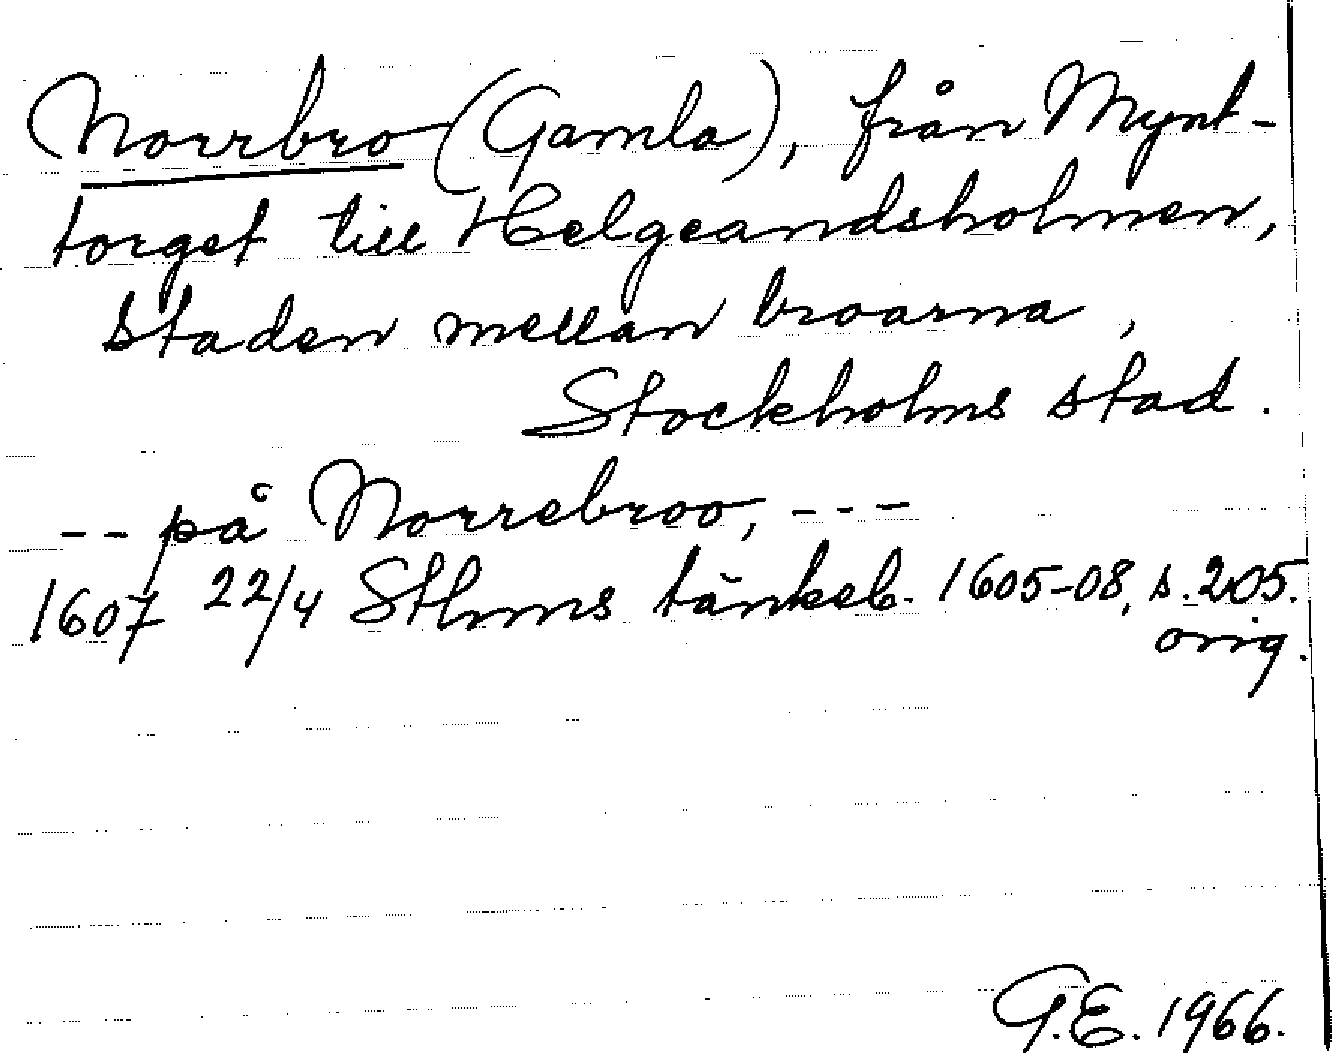 Norrbro (Gamla), från Mynt-
torget till Helgeandsholmen,
staden mellan broarna,
Stockholms stad.
-- på Norrebroo, ---
1607 22/4 Sthms tänkeb. 1605-08, s. 205.
orig.
G.E. 1966.